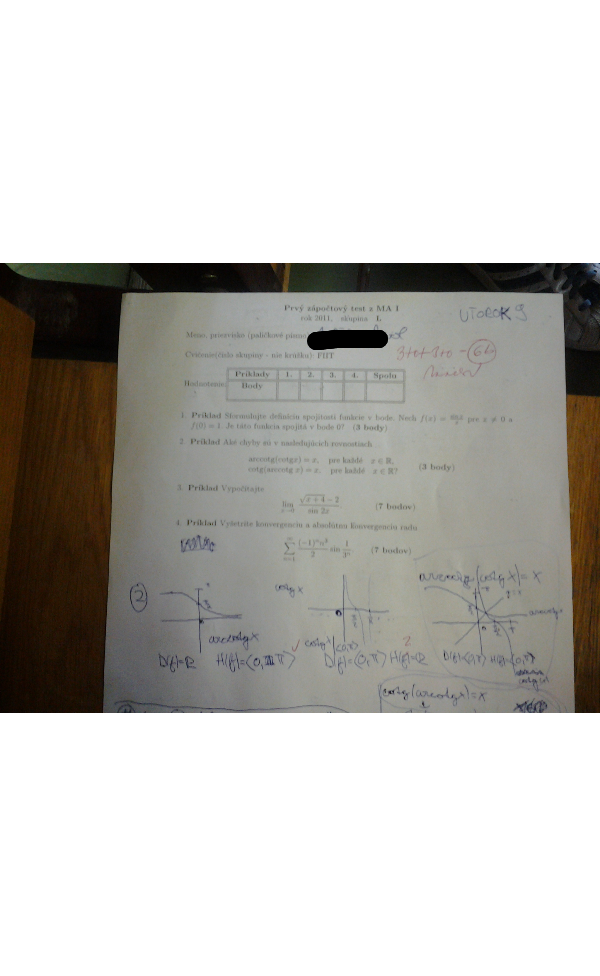 Prvý zápočtový test z MA I
rok 2011, skupina L
UTOROK 9
Meno, priezvisko (paličkové písmo)
Cvičenie(číslo skupiny - nie krúžku): FIIT
3+0+3+0 = 6b
Hodnotenie:
Príklady 1. 2. 3. 4. Spolu
Body
1. Príklad Sformulujte definíciu spojitosti funkcie v bode. Nech f(x) = sin x / x pre x ≠ 0 a
f(0) = 1. Je táto funkcia spojitá v bode 0? (3 body)
2. Príklad Aké chyby sú v nasledujúcich rovnostiach
arccotg(cotgx) = x, pre každé x ∈ R,
cotg(arccotg x) = x, pre každé x ∈ R?
(3 body)
3. Príklad Vypočítajte
lim x→0 (√(x + 4) − 2) / (sin 2x) (7 bodov)
4. Príklad Vyšetrite konvergenciu a absolútnu konvergenciu radu
∑ n=1 ∞ (−1)ⁿn³ / 2 sin 1/3ⁿ. (7 bodov)
arccotg(cotg x) = x
2
cotg x
arccotg x
cotg x|(0,π)
D(f)=R H(f)=(0,π) D(f)=(0,π) H(f)=R D(f)=(0,π) H(f)=(0,π)
cotg(arccotg x)=x